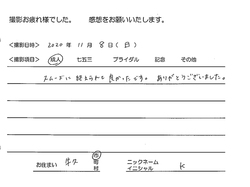 撮影お疲れ様でした。　感想をお願いいたします。
<撮影日時>　2020 年 11 月 8 日 ( 日 )
<撮影項目>　成人　七五三　ブライダル　記念　その他
スムーズに終えられて良かったです。ありがとうございました。
お住まい　牛久　市 町 村　ニックネーム イニシャル　K